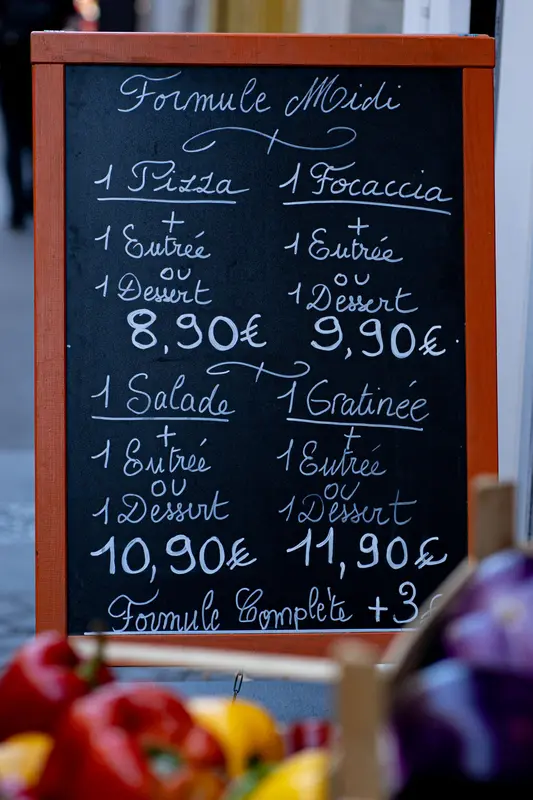 Formule Midi
1 Pizza
+
1 Entrée
ou
1 Dessert
8,90€
1 Focaccia
+
1 Entrée
ou
1 Dessert
9,90€
1 Salade
+
1 Entrée
ou
1 Dessert
10,90€
1 Gratinée
+
1 Entrée
ou
1 Dessert
11,90€
Formule Complète +3€